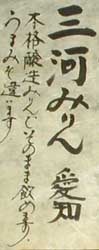 三河みりん 愛知
本格醸造みりんそのまま飲めます。
うまみそ違います